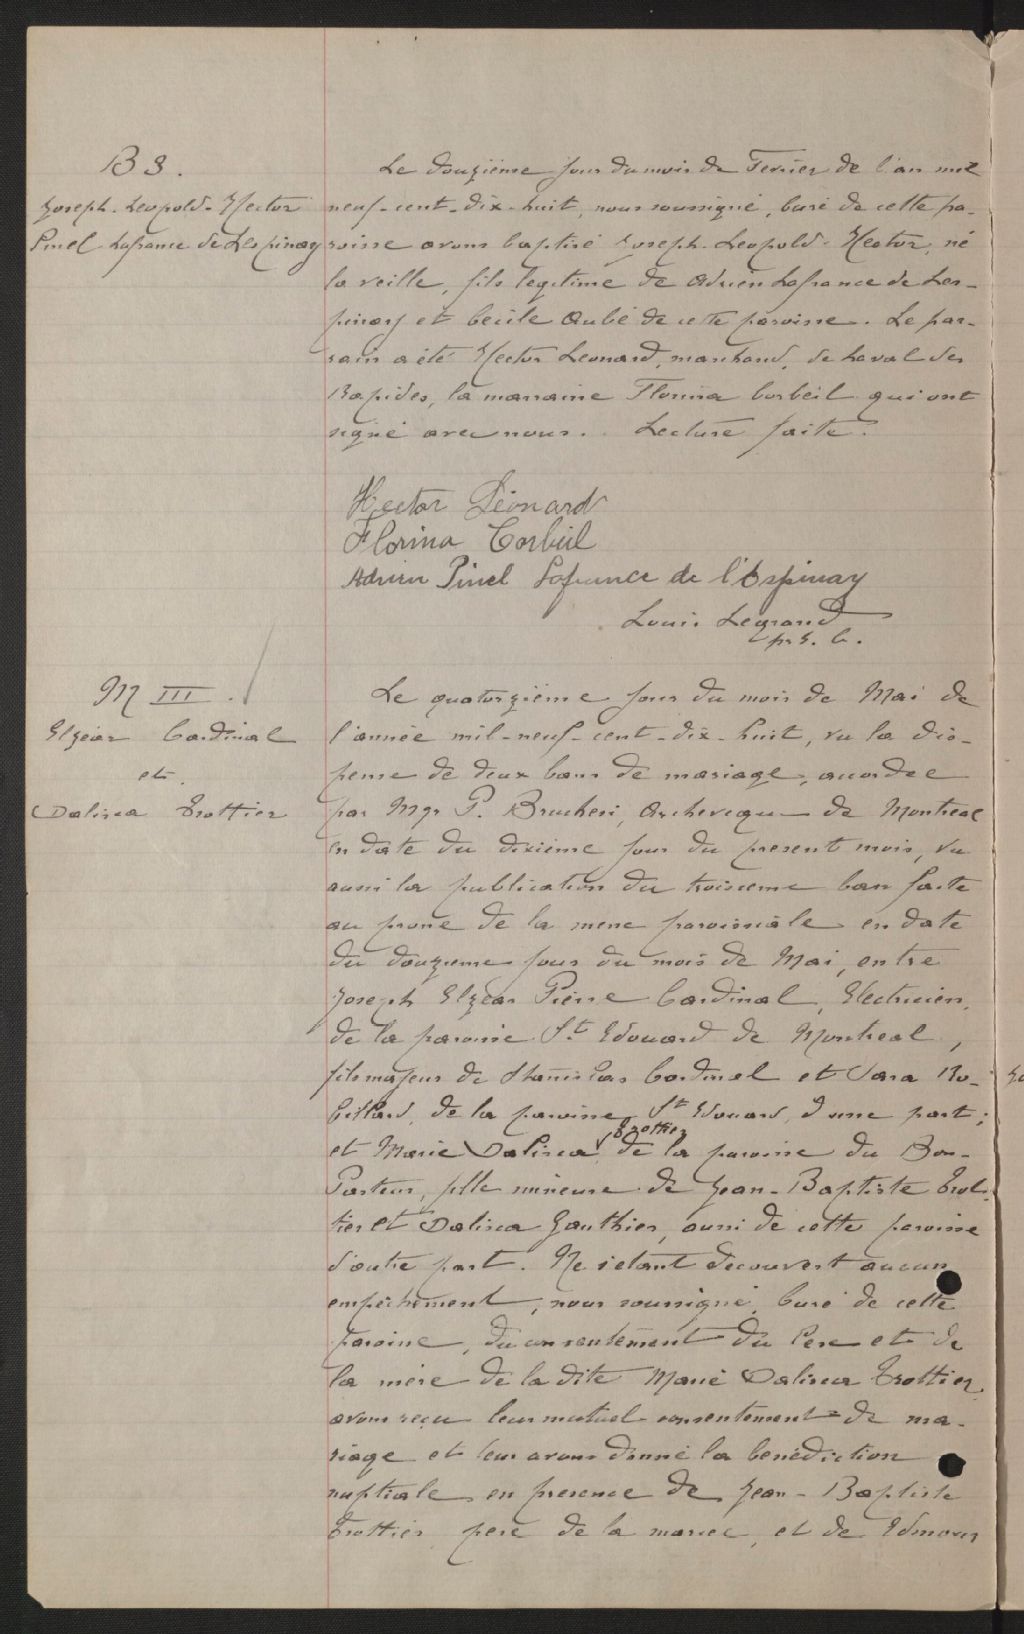 B 3.
Joseph-Leopold-Hector
Pinel Lafrance de Lespinay
Le douzième jour du mois de Fevrier de l'an mil
neuf-cent-dix-huit, nous soussigné, Curé de cette pa-
roisse avons baptisé Joseph-Leopold-Hector, né
la veille, fils legitime de Adrien Lafrance de Les-
pinay et Cecile Aubé de cette paroisse. Le par-
rain a été Hector Leonard, marchand, de Laval des
Rapides, la marraine Florina Corbeil qui ont
signé avec nous. Lecture faite.
Hector Léonard
Florina Corbeil
Adrien Pinel Lafrance de l'Espinay
Louis Legrand
ptr. C.
M III.
Elzear Cardinal
et.
Dalisca Trottier
Le quatorzième jour du mois de Mai de
l'année mil-neuf-cent-dix-huit, vu la dis-
pense de deux bans de mariage, accordee
par Mgr P. Bruchesi, Archeveque de Montreal
en date du dixième jour du present mois, vu
aussi la publication du troisieme ban faite
au prone de la messe paroissiale en date
du douzieme jour du mois de Mai, entre
Joseph Elzear Pierre Cardinal, Electricien,
de la paroisse St Edouard de Montreal,
fils majeur de Stanislas Cardinal et Sara Ro-
billard, de la paroisse St Edouard, d'une part;
et Marie Dalisca Trottier, de la paroisse du Bon-
Pasteur, fille mineure de Jean-Baptiste Trot-
tier et Dalisca Gauthier, aussi de cette paroisse
d'autre part. Ne s'etant decouvert aucun
empêchement, nous soussigné, Curé de cette
paroisse, du consentement du Pere et de
la mère de la dite Marie Dalisca Trottier,
avons reçu leur mutuel consentement de ma-
riage et leur avons donné la benédiction
nuptiale en presence de Jean-Baptiste
Trottier, pere de la mariee, et de Edmour